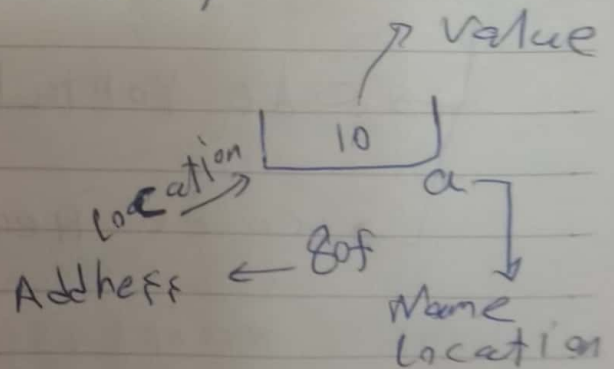 Value
10
Location
a
80f
Address
Name
Location